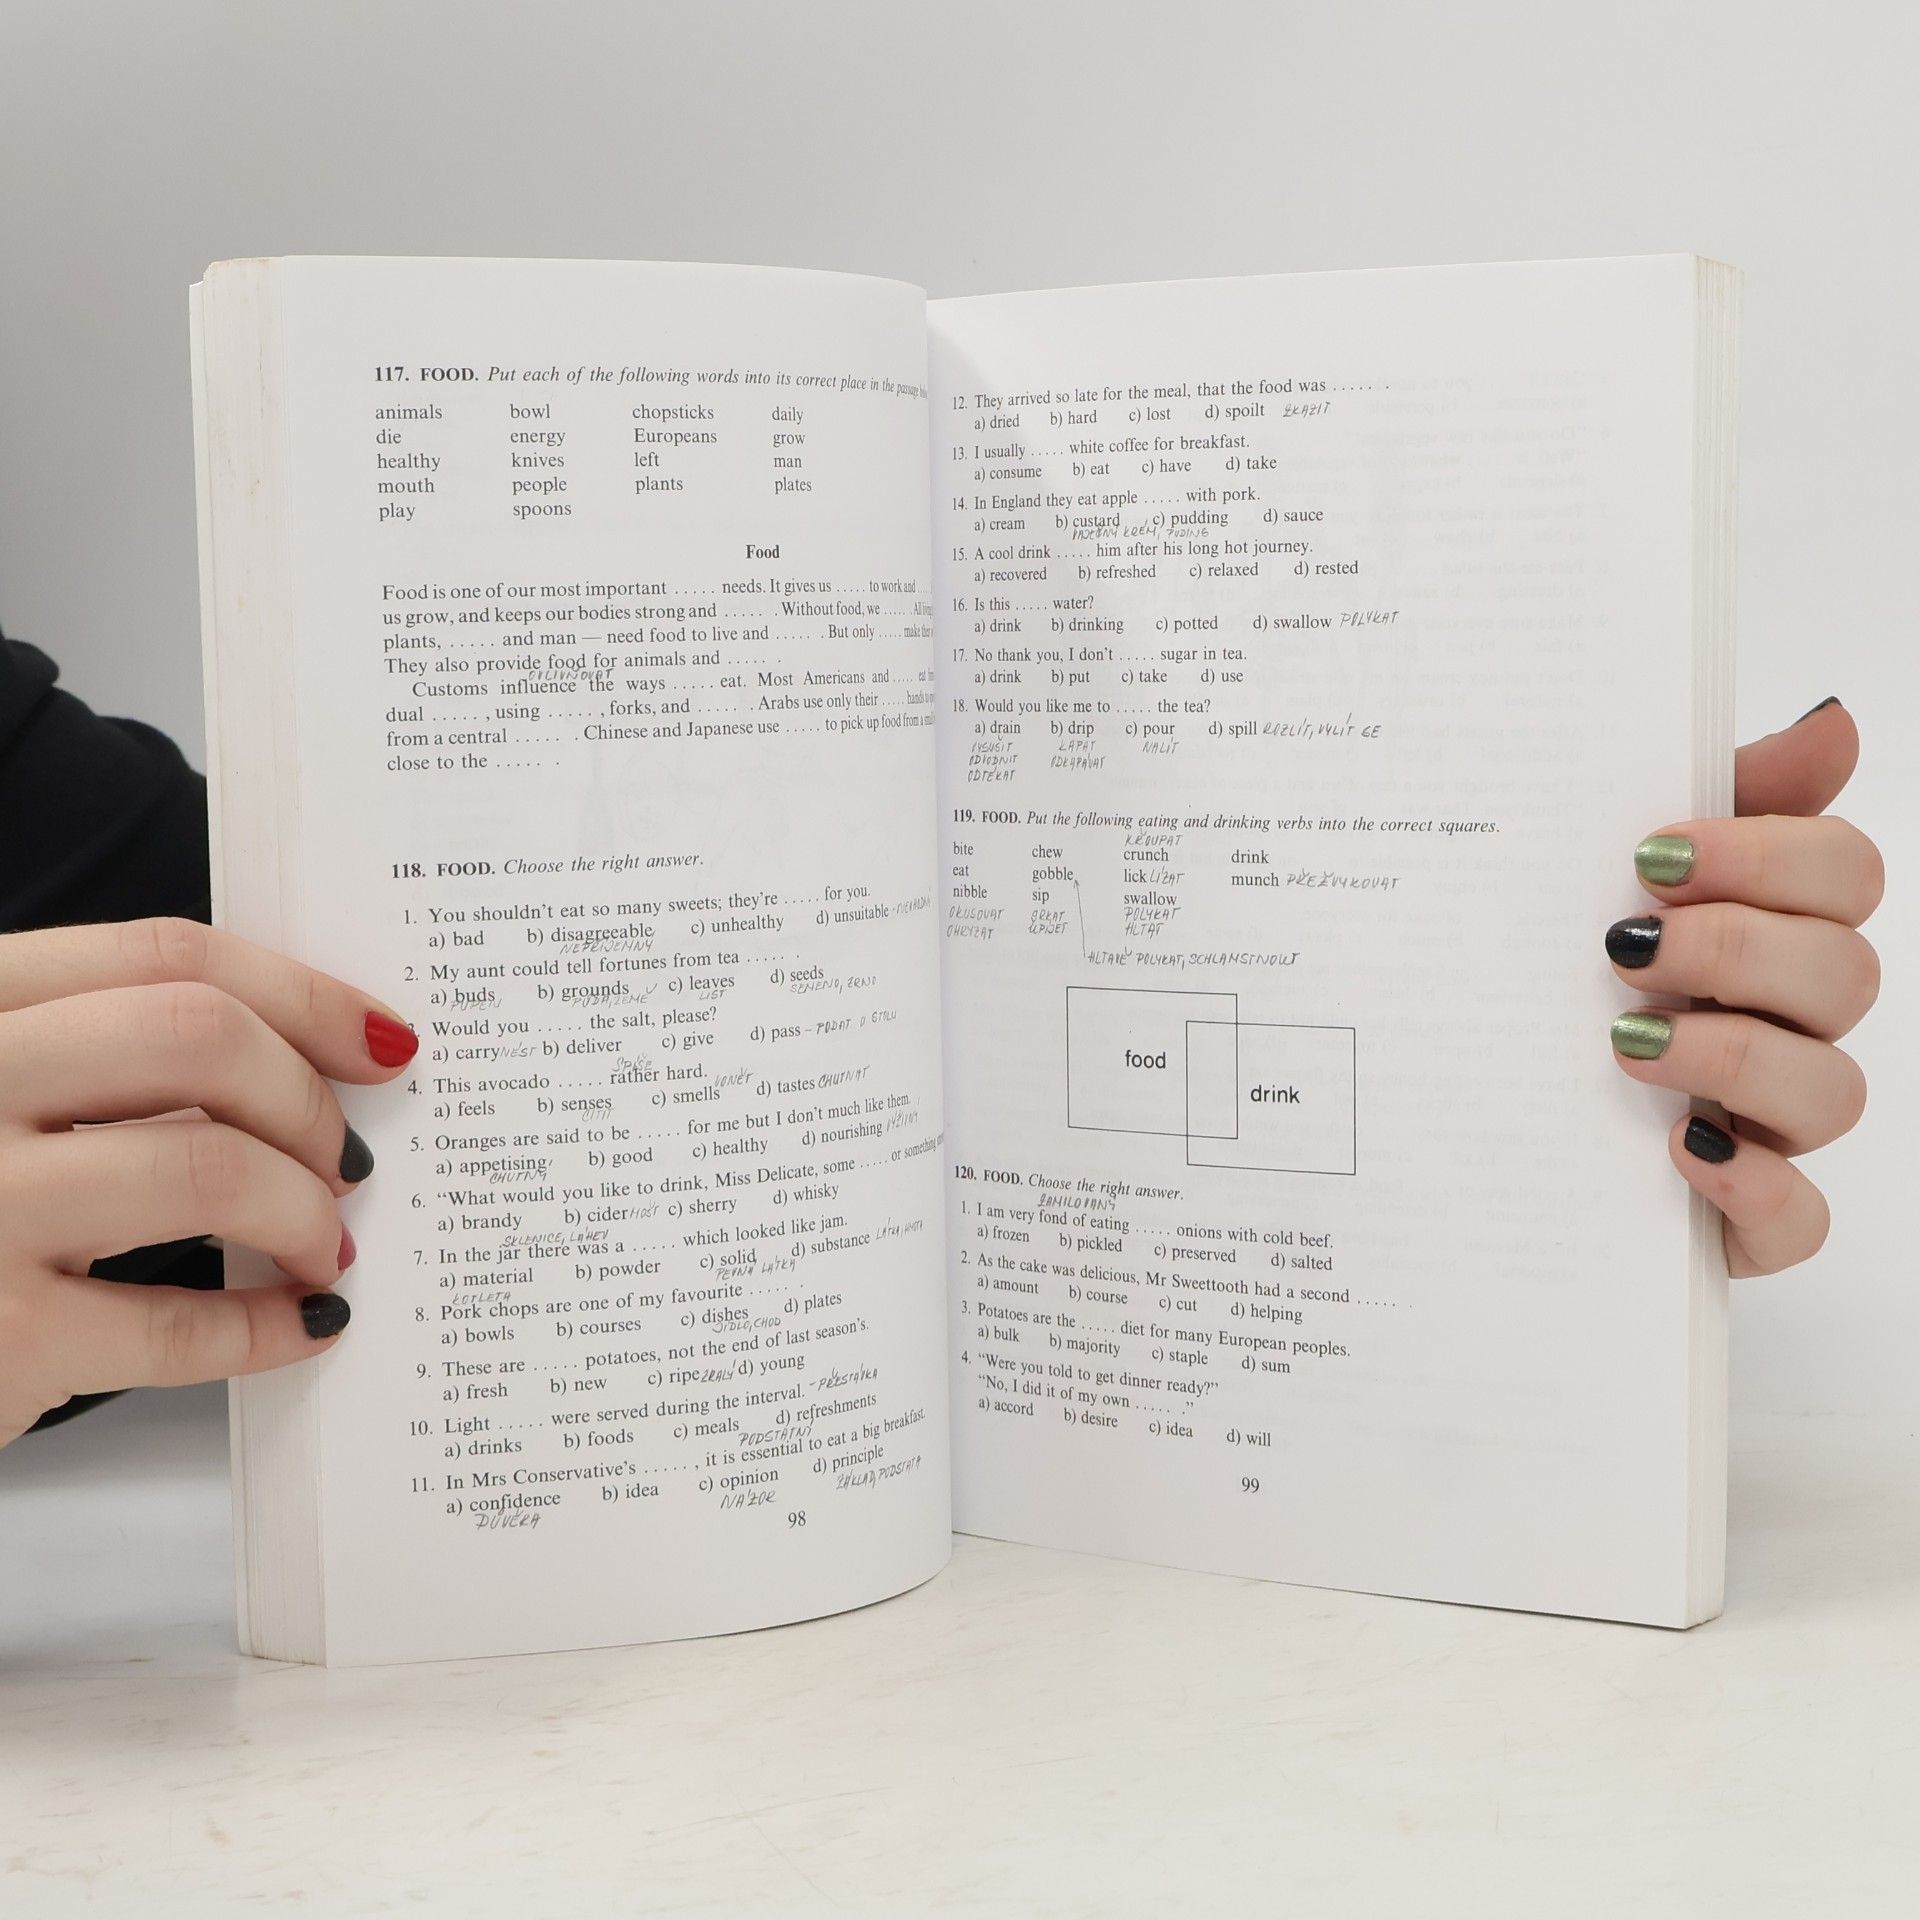 117. FOOD. Put each of the following words into its correct place in the passage
animals bowl chopsticks daily
die energy Europeans grow
healthy knives left man
mouth people plants plates
play spoons
Food
Food is one of our most important ..... needs. It gives us ..... to work and ....
us grow, and keeps our bodies strong and ..... . Without food, we ..... . All
plants, ..... and man — need food to live and ..... . But only ..... make
They also provide food for animals and ..... .
OVLIVŇOVAT
Customs influence the ways ..... eat. Most Americans and ..... eat
dual ..... , using ..... , forks, and ..... . Arabs use only their ..... hands
from a central ..... . Chinese and Japanese use ..... to pick up food from a
close to the ..... .
118. FOOD. Choose the right answer.
1. You shouldn't eat so many sweets; they're ..... for you.
a) bad b) disagreeable c) unhealthy d) unsuitable
NEPŘÍJEMNÝ
2. My aunt could tell fortunes from tea ..... .
a) buds b) grounds c) leaves d) seeds
PUPEN PŮDA, ZEMĚ LIST SEMENO, ZRNO
3. Would you ..... the salt, please?
a) carry NÉST b) deliver c) give d) pass – PODAT U STOLU
SPÍŠE
4. This avocado ..... rather hard.
a) feels b) senses c) smells VONĚT d) tastes CHUTNAT
CÍTIT
5. Oranges are said to be ..... for me but I don't much like them.
a) appetising b) good c) healthy d) nourishing VÝŽIVNÝ
CHUTNÝ
6. "What would you like to drink, Miss Delicate, some ..... or something
a) brandy b) cider MOŠT c) sherry d) whisky
SKLENICE, LÁHEV
7. In the jar there was a ..... which looked like jam.
a) material b) powder c) solid d) substance LÁTKA, HMOTA
PEVNÁ LÁTKA
KOTLETA
8. Pork chops are one of my favourite ..... .
a) bowls b) courses c) dishes d) plates
JÍDLO, CHOD
9. These are ..... potatoes, not the end of last season's.
a) fresh b) new c) ripe ZRALÝ d) young
10. Light ..... were served during the interval. – PŘESTÁVKA
a) drinks b) foods c) meals d) refreshments
PODSTATNÝ
11. In Mrs Conservative's ..... , it is essential to eat a big breakfast.
a) confidence b) idea c) opinion d) principle
DŮVĚRA NÁZOR ZÁKLAD, PODSTATA
98
12. They arrived so late for the meal, that the food was ..... .
a) dried b) hard c) lost d) spoilt ZKAZIT
13. I usually ..... white coffee for breakfast.
a) consume b) eat c) have d) take
14. In England they eat apple ..... with pork.
a) cream b) custard c) pudding d) sauce
VAJEČNÝ KRÉM, PUDING
15. A cool drink ..... him after his long hot journey.
a) recovered b) refreshed c) relaxed d) rested
16. Is this ..... water?
a) drink b) drinking c) potted d) swallow POLYKAT
17. No thank you, I don't ..... sugar in tea.
a) drink b) put c) take d) use
18. Would you like me to ..... the tea?
a) drain b) drip c) pour d) spill ROZLÍT, VYLÍT SE
VYSUŠIT KAPAT NALÍT
ODVODNIT ODKAPÁVAT
ODTÉKAT
119. FOOD. Put the following eating and drinking verbs into the correct squares.
KŘOUPAT
bite chew crunch drink
eat gobble lick LÍZAT munch PŘEŽVYKOVAT
nibble sip swallow
OKUSOVAT SRKAT POLYKAT
OHRYZAT UPÍJET HLTAT
HLTAVĚ POLYKAT, SCHLAMSTNOUT
food
drink
120. FOOD. Choose the right answer.
ZAMILOVANÝ
1. I am very fond of eating ..... onions with cold beef.
a) frozen b) pickled c) preserved d) salted
2. As the cake was delicious, Mr Sweettooth had a second ..... .
a) amount b) course c) cut d) helping
3. Potatoes are the ..... diet for many European peoples.
a) bulk b) majority c) staple d) sum
4. "Were you told to get dinner ready?"
"No, I did it of my own ..... ."
a) accord b) desire c) idea d) will
99